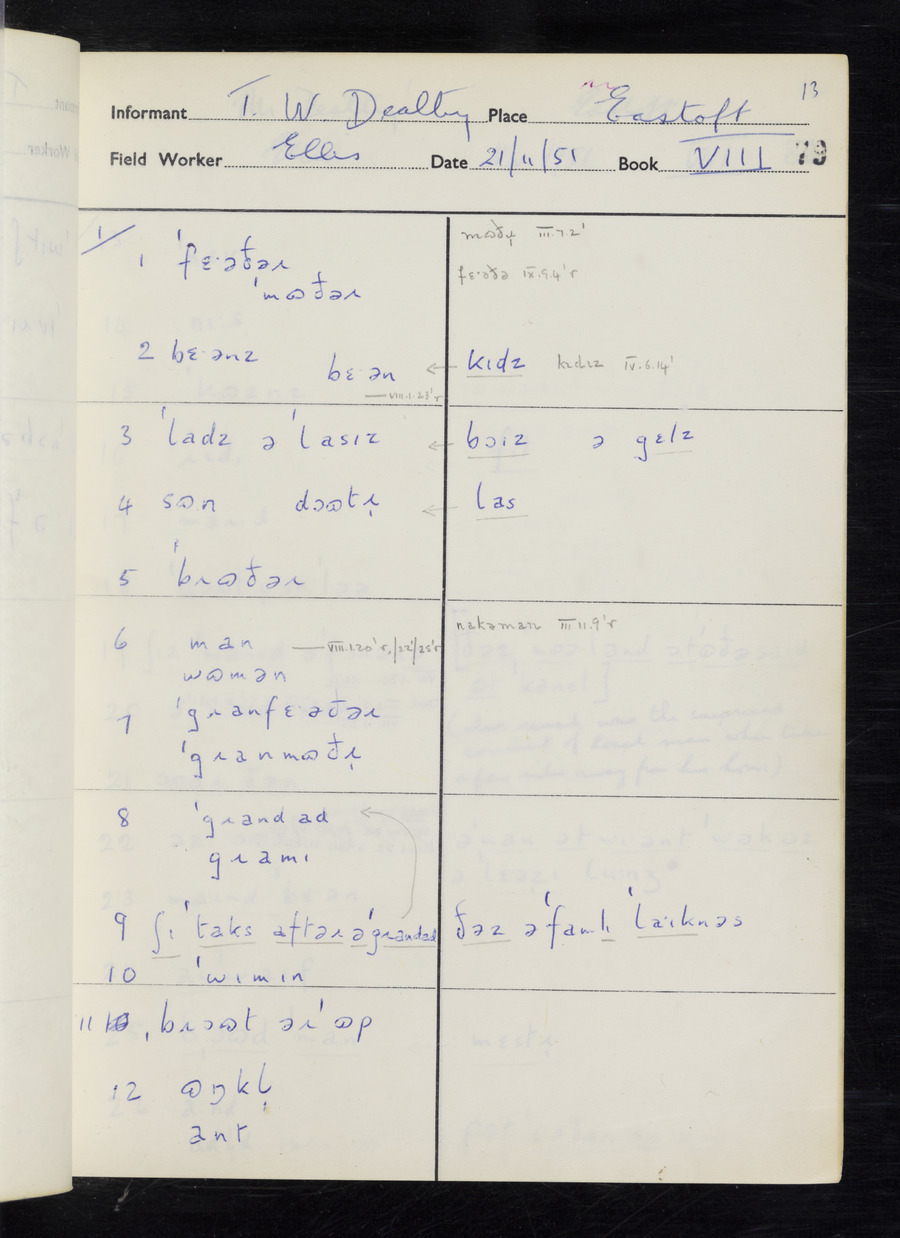 13
Informant T. W. Dealtry Place Eastoft
Field Worker Ellis Date 21/11/51 Book VIII 79
1/
mʊðɹ̩ III.7.2'
1 ˈfɛ·əðəɹ
fɛ·əðə IX.9.4'r
ˈmʊðəɹ
2 bɛ·ənz kɪdz kɪdɪz IV.6.14'
bɛ·ən ←
— VIII.1.23'r
3 ˈladz ə ˈlasɪz ← bɔɪz ə gɛlz
4 sʊn dɔʊtɹ̩ ← las
5 ˈbɹʊðəɹ
nakəman III.11.9'r
6 man — VIII.1.20'r,/22'/25'r
wʊmən
7 ˈgɹanfɛ·əðəɹ
ˈgɹanmʊðɹ̩
8 ˈgɹandad
gɹamɪ
9 ʃɪ ˈtaks aftəɹ əˈgɹandad ðəz əˈfamlɪ ˈlaɪknəs
10 ˈwɪmɪn
11 ˌbɹɔʊt əɹˈʊp
12 ʊŋkl̩
ant